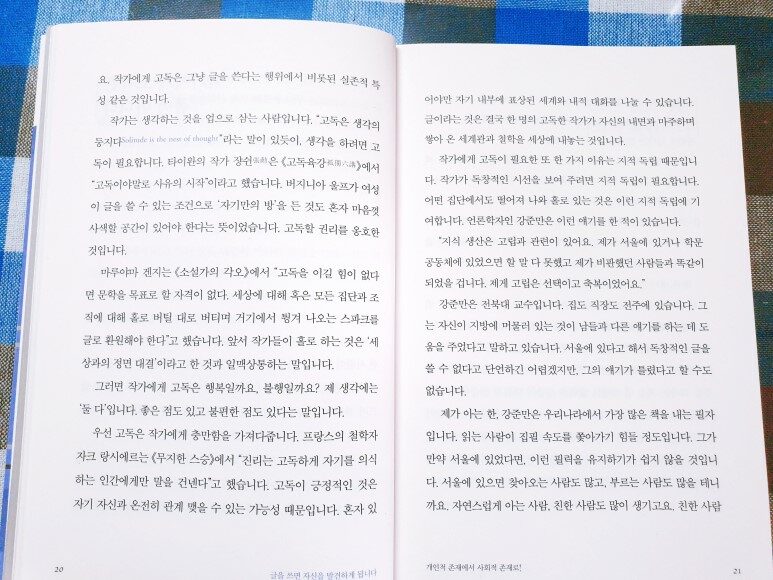 요. 작가에게 고독은 그냥 글을 쓴다는 행위에서 비롯된 실존적 특
성 같은 것입니다.
작가는 생각하는 것을 업으로 삼는 사람입니다. “고독은 생각의
둥지다Solitude is the nest of thought”라는 말이 있듯이, 생각을 하려면 고
독이 필요합니다. 타이완의 작가 장쉰蔣勳은 《고독육강孤獨六講》에서
“고독이야말로 사유의 시작”이라고 했습니다. 버지니아 울프가 여성
이 글을 쓸 수 있는 조건으로 ‘자기만의 방’을 든 것도 혼자 마음껏
사색할 공간이 있어야 한다는 뜻이었습니다. 고독할 권리를 옹호한
것입니다.
마루야마 겐지는 《소설가의 각오》에서 “고독을 이길 힘이 없다
면 문학을 목표로 할 자격이 없다. 세상에 대해 혹은 모든 집단과 조
직에 대해 홀로 버틸 대로 버티며 거기에서 튕겨 나오는 스파크를
글로 환원해야 한다”고 했습니다. 앞서 작가들이 홀로 하는 것은 ‘세
상과의 정면 대결’이라고 한 것과 일맥상통하는 말입니다.
그러면 작가에게 고독은 행복일까요, 불행일까요? 제 생각에는
‘둘 다’입니다. 좋은 점도 있고 불편한 점도 있다는 말입니다.
우선 고독은 작가에게 충만함을 가져다줍니다. 프랑스의 철학자
자크 랑시에르는 《무지한 스승》에서 “진리는 고독하게 자기를 의식
하는 인간에게만 말을 건넨다”고 했습니다. 고독이 긍정적인 것은
자기 자신과 온전히 관계 맺을 수 있는 가능성 때문입니다. 혼자 있
20
글을 쓰면 자신을 발견하게 됩니다
어야만 자기 내부에 표상된 세계와 내적 대화를 나눌 수 있습니다.
글이라는 것은 결국 한 명의 고독한 작가가 자신의 내면과 마주하며
쌓아 온 세계관과 철학을 세상에 내놓는 것입니다.
작가에게 고독이 필요한 또 한 가지 이유는 지적 독립 때문입니
다. 작가가 독창적인 시선을 보여 주려면 지적 독립이 필요합니다.
어떤 집단에서도 떨어져 나와 홀로 있는 것은 이런 지적 독립에 기
여합니다. 언론학자인 강준만은 이런 얘기를 한 적이 있습니다.
“지식 생산은 고립과 관련이 있어요. 제가 서울에 있거나 학문
공동체에 있었으면 할 말 다 못했고 제가 비판했던 사람들과 똑같이
되었을 겁니다. 제게 고립은 선택이고 축복이었어요.”
강준만은 전북대 교수입니다. 집도 직장도 전주에 있습니다. 그
는 자신이 지방에 머물러 있는 것이 남들과 다른 얘기를 하는 데 도
움을 주었다고 말하고 있습니다. 서울에 있다고 해서 독창적인 글을
쓸 수 없다고 단언하긴 어렵겠지만, 그의 얘기가 틀렸다고 할 수도
없습니다.
제가 아는 한, 강준만은 우리나라에서 가장 많은 책을 내는 필자
입니다. 읽는 사람이 집필 속도를 쫓아가기 힘들 정도입니다. 그가
만약 서울에 있었다면, 이런 필력을 유지하기가 쉽지 않을 것입니
다. 서울에 있으면 찾아오는 사람도 많고, 부르는 사람도 많을 테니
까요. 자연스럽게 아는 사람, 친한 사람도 많이 생기고요. 친한 사람
개인적 존재에서 사회적 존재로!
21